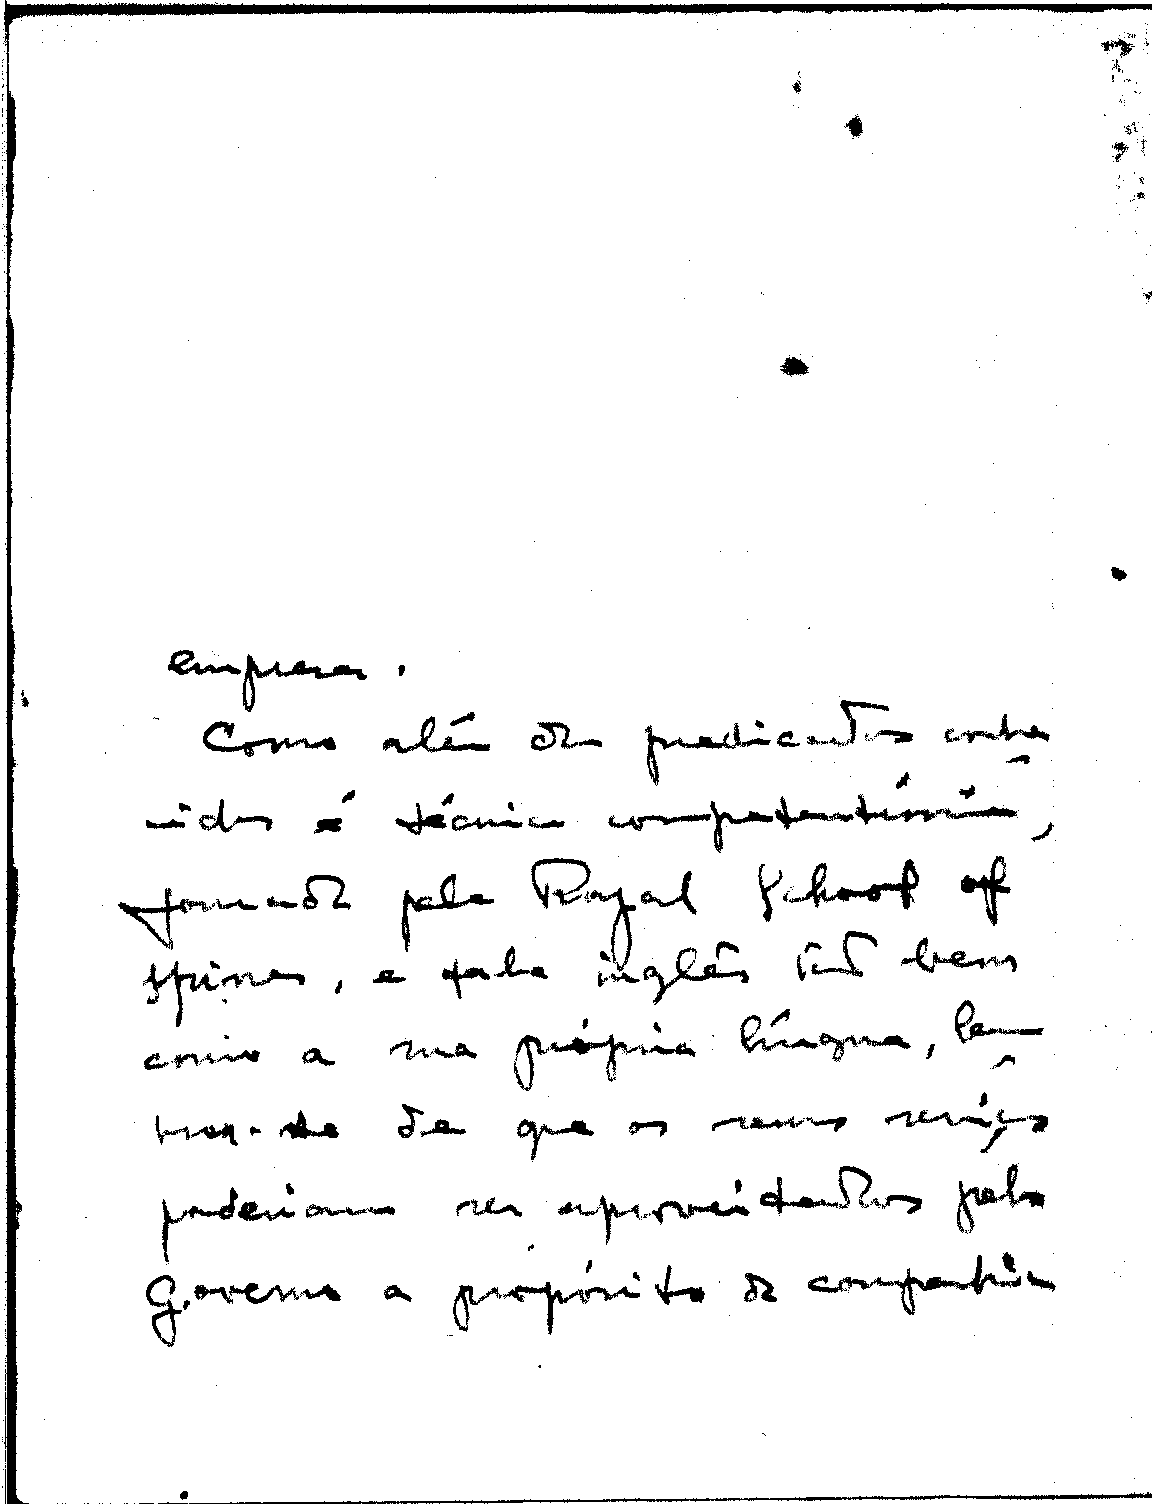 empresa.
Como além de predicados conhe
cidos é técnico competentíssimo,
formado pela Royal School of
Mines, e fala inglês tão bem
como a sua própria língua, lem
brei-me de que os seus serviços
poderiam ser aproveitados pelo
Governo a propósito da companhia